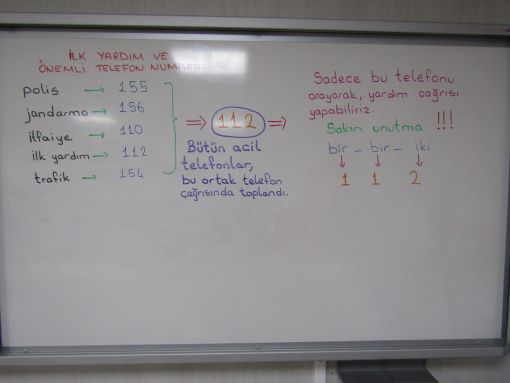 İLK YARDIM VE
ÖNEMLİ TELEFON NUMARALARI
polis → 155
jandarma → 156
itfaiye → 110
ilk yardım → 112
trafik → 154
⇒ 112 ⇒
Bütün acil
telefonlar,
bu ortak telefon
çağrısında toplandı.
Sadece bu telefonu
arayarak, yardım çağrısı
yapabiliriz.
Sakın unutma !!!
bir - bir - iki
↓ ↓ ↓
1 1 2